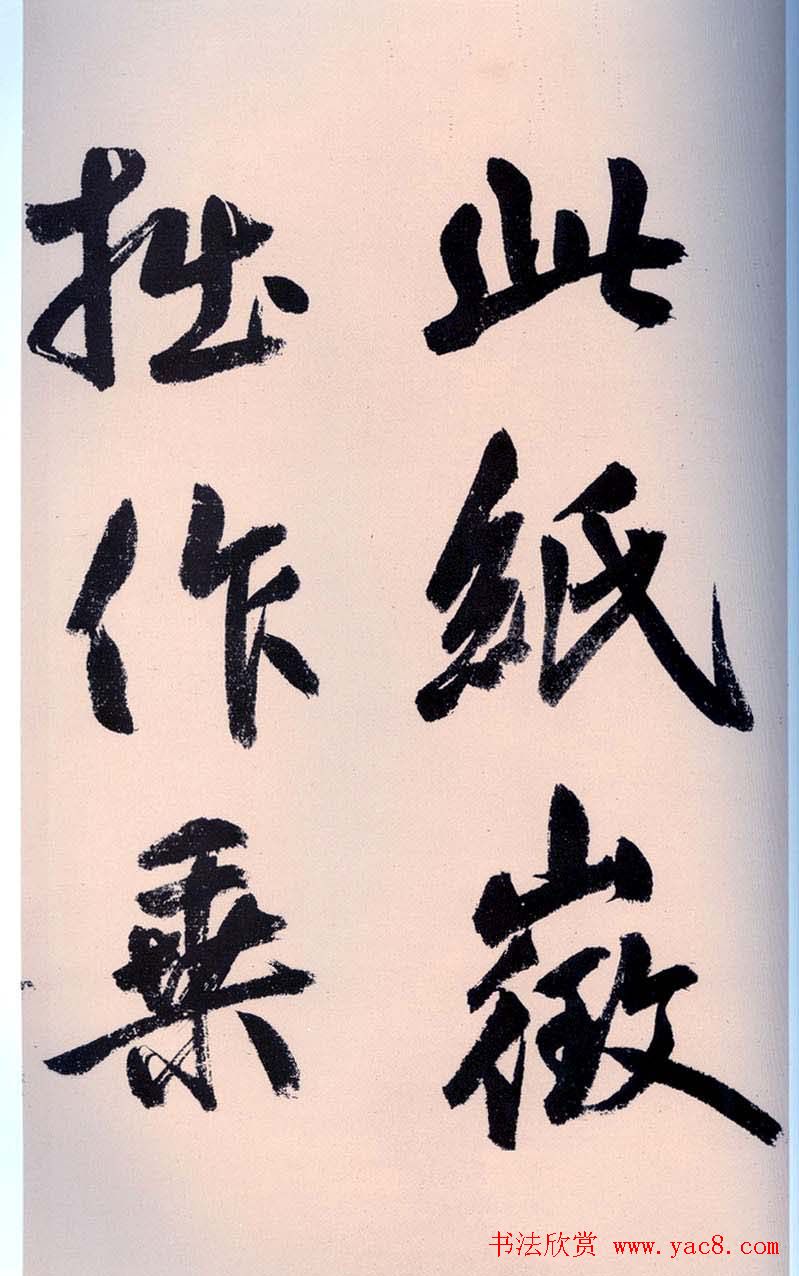 此紙徵
拙作乘
书法欣赏 www.yac8.com